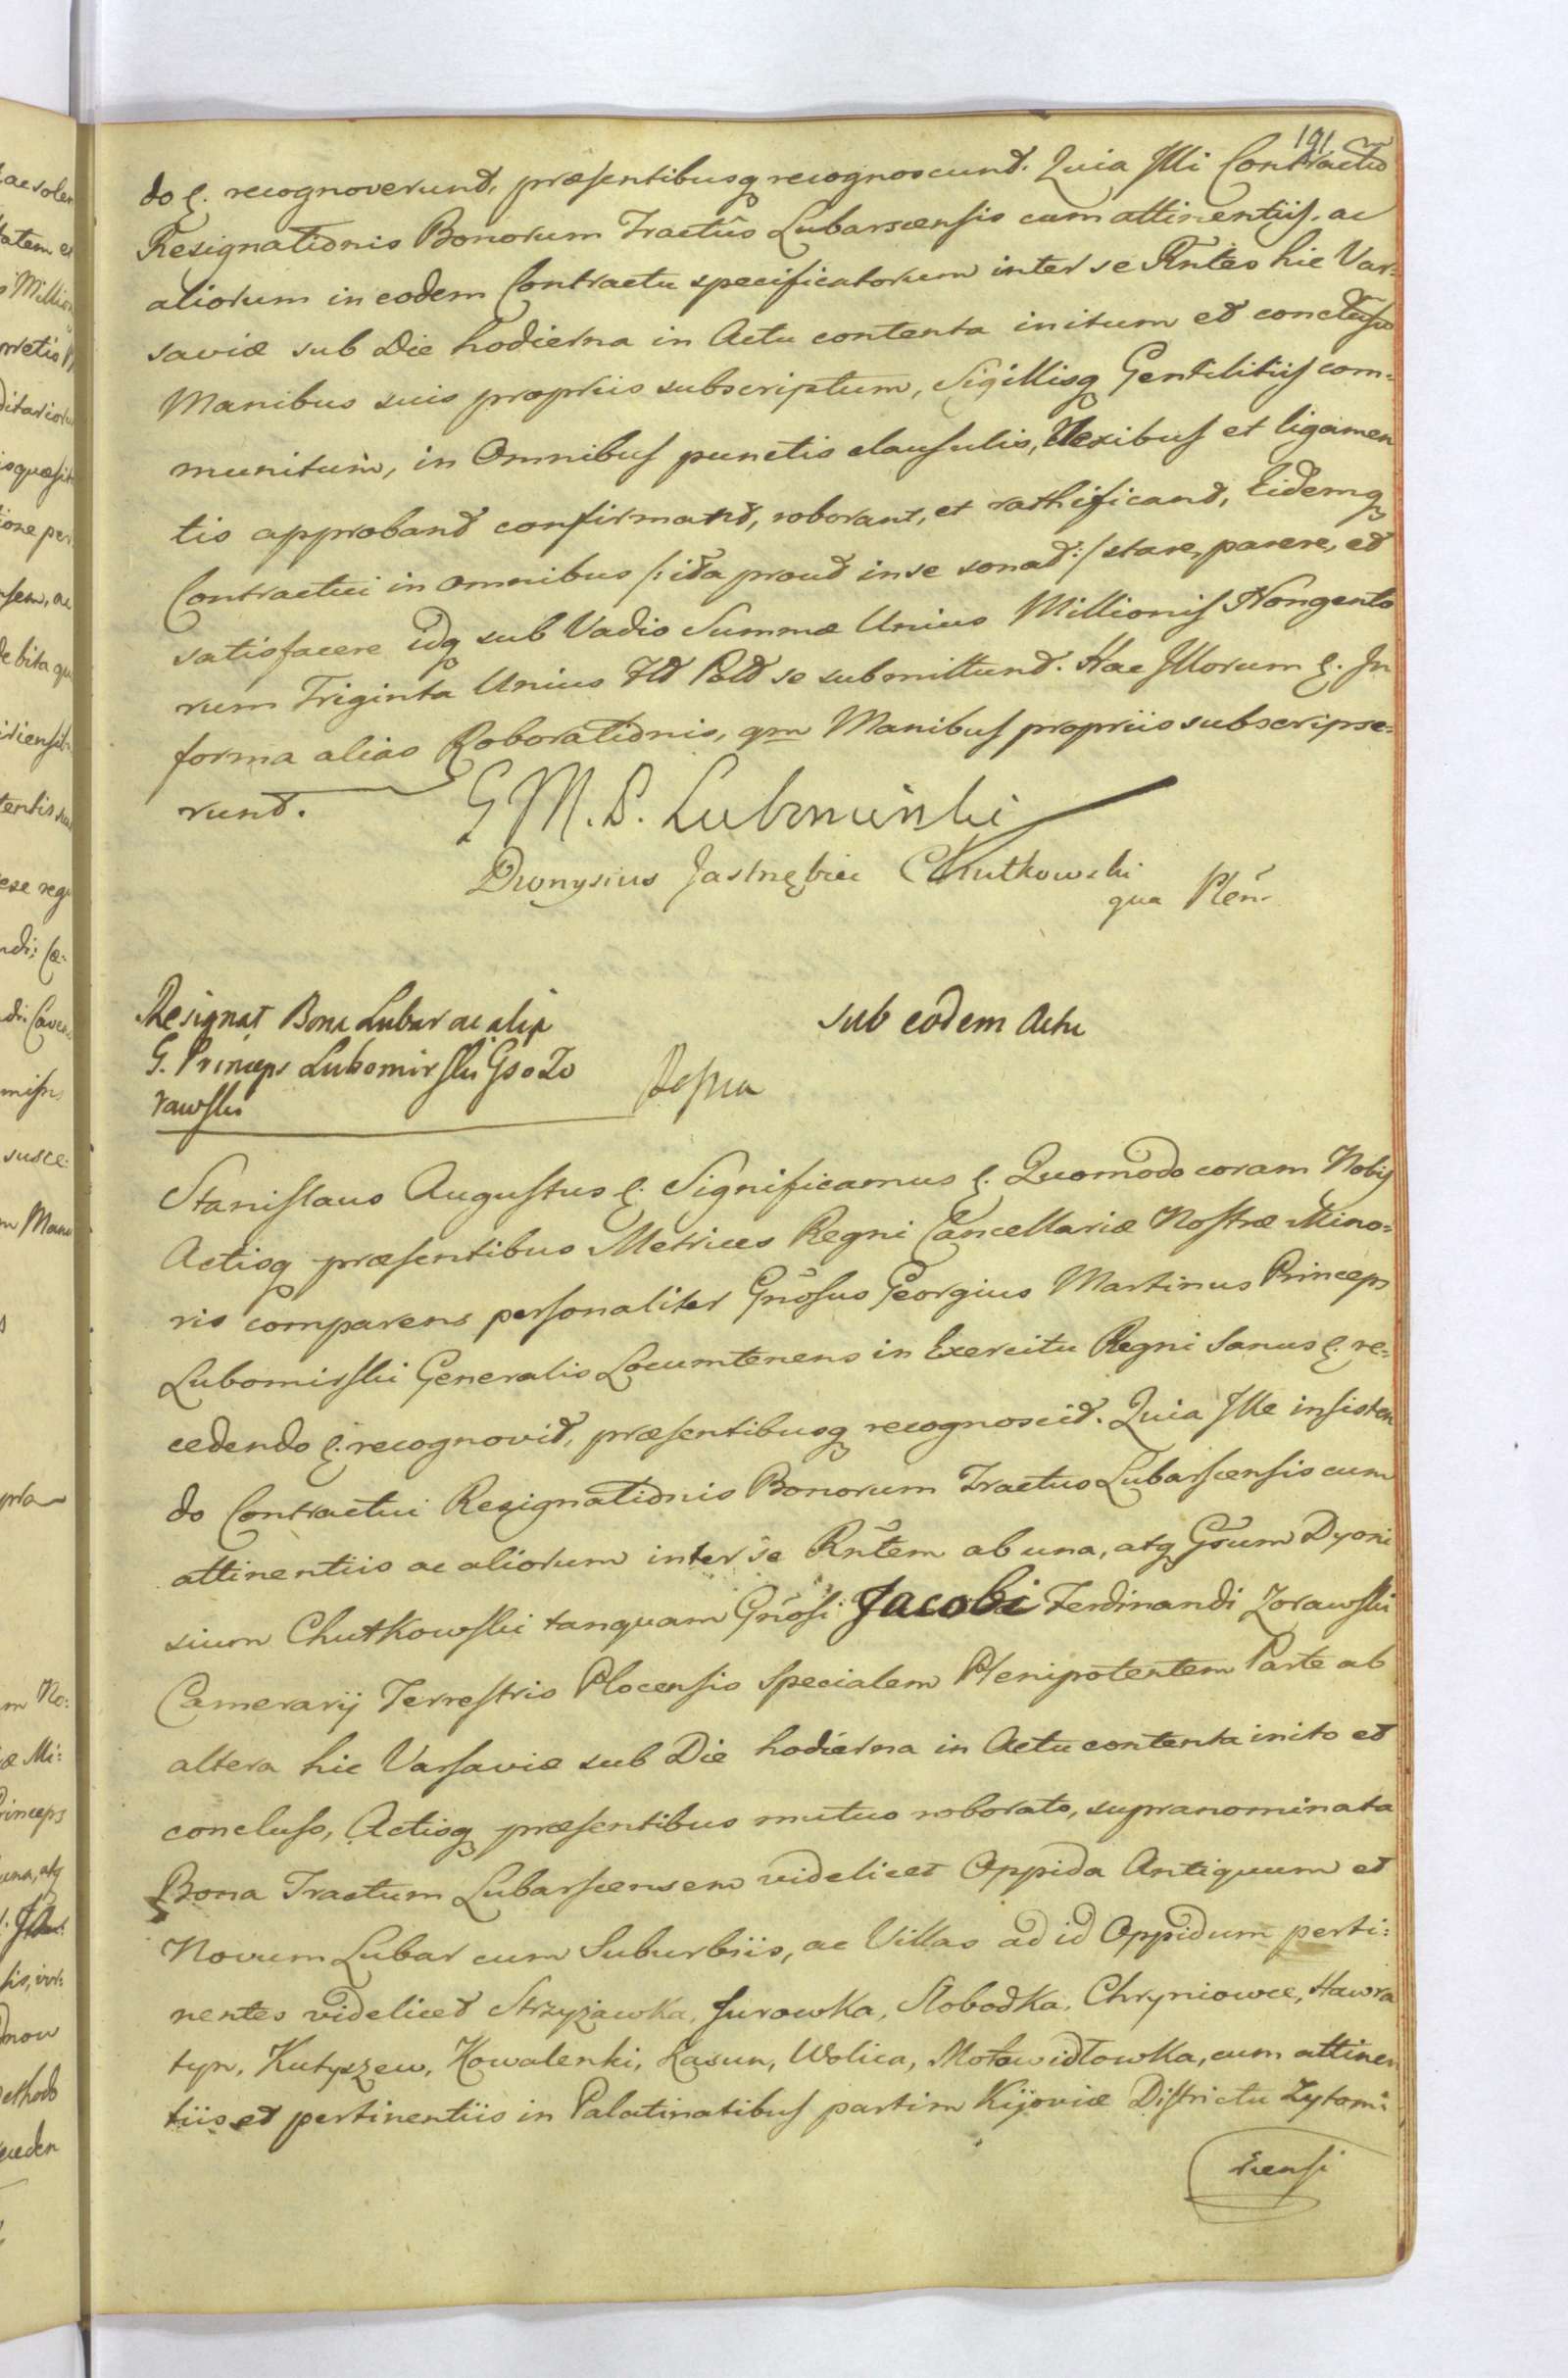 191
do &. recognoverunt, præsentibusq recognoscunt. Quia Illi Contractũ
Resignationis Bonorum Tractûs Lubarscensis cum attinentiis, ac
aliorum in eodem Contractu specificatorum inter se Rñtes hic Var=
saviæ sub Die hodierna in Actu contenta initum et conclusũ
Manibus suis propriis subscriptum, Sigillisq Gentilitiis com=
munitum, in Omnibus punctis clausulis, Nexibus et ligamen
tis approbant confirmant, roborant, et rathificant, Eidemq
Contractui in omnibus /: ita prout in se sonat :/ stare, parere, et
satisfacere idq sub Vadio Summæ Unius Millionis Nongento
rum Triginta Unius Flt Polt se submittunt. Hac Illorum &. In
forma alias Roborationis, qm Manibus propriis subscripse=
runt.
G M. P. Lubomirski
Dionysius Jastrzębiec Chutkowski
qua Plen̄.
Resignat Bona Lubar ac alia
G. Princeps Lubomirski Gso Zo
rawski
sub eodem Actu
Stanislaus Augustus &. Significamus &. Quomodo coram Nobis
Actisq præsentibus Metrices Regni Cancellariæ Nostræ Mino=
ris comparens personaliter Gñosus Georgius Martinus Princeps
Lubomirski Generalis Locumtenens in Exercitu Regni Sanus &. re=
cedendo &. recognovit, præsentibusq recognoscit. Quia Ille insisten
do Contractui Resignationis Bonorum Tractus Lubarscensis cum
attinentiis ac aliorum inter se Rñtem ab una, atq Gsum Dyoni
sium Chutkowski tanquam Gñosi Jacobi Ferdinandi Zorawski
Camerarij Terrestris Plocensis Specialem Plenipotentem Parte ab
altera hic Varsaviæ sub Die hodierna in Actu contenta inito et
concluso, Actisq præsentibus mutuo roborato, supranominata
Bona Tractum Lubarscensem videlicet Oppida Antiquum et
Novum Lubar cum Suburbiis, ac Villas ad id Oppidum perti=
nentes videlicet Strzyżawka, Jurowka, Slobodka, Chryniowce, Hawra
tyn, Kutyszew, Kowalenki, Kasun, Wolica, Motowidłowka, cum attinen
tiis et pertinentiis in Palatinatibus partim Kijoviæ Districtu Zytomi=
riensi